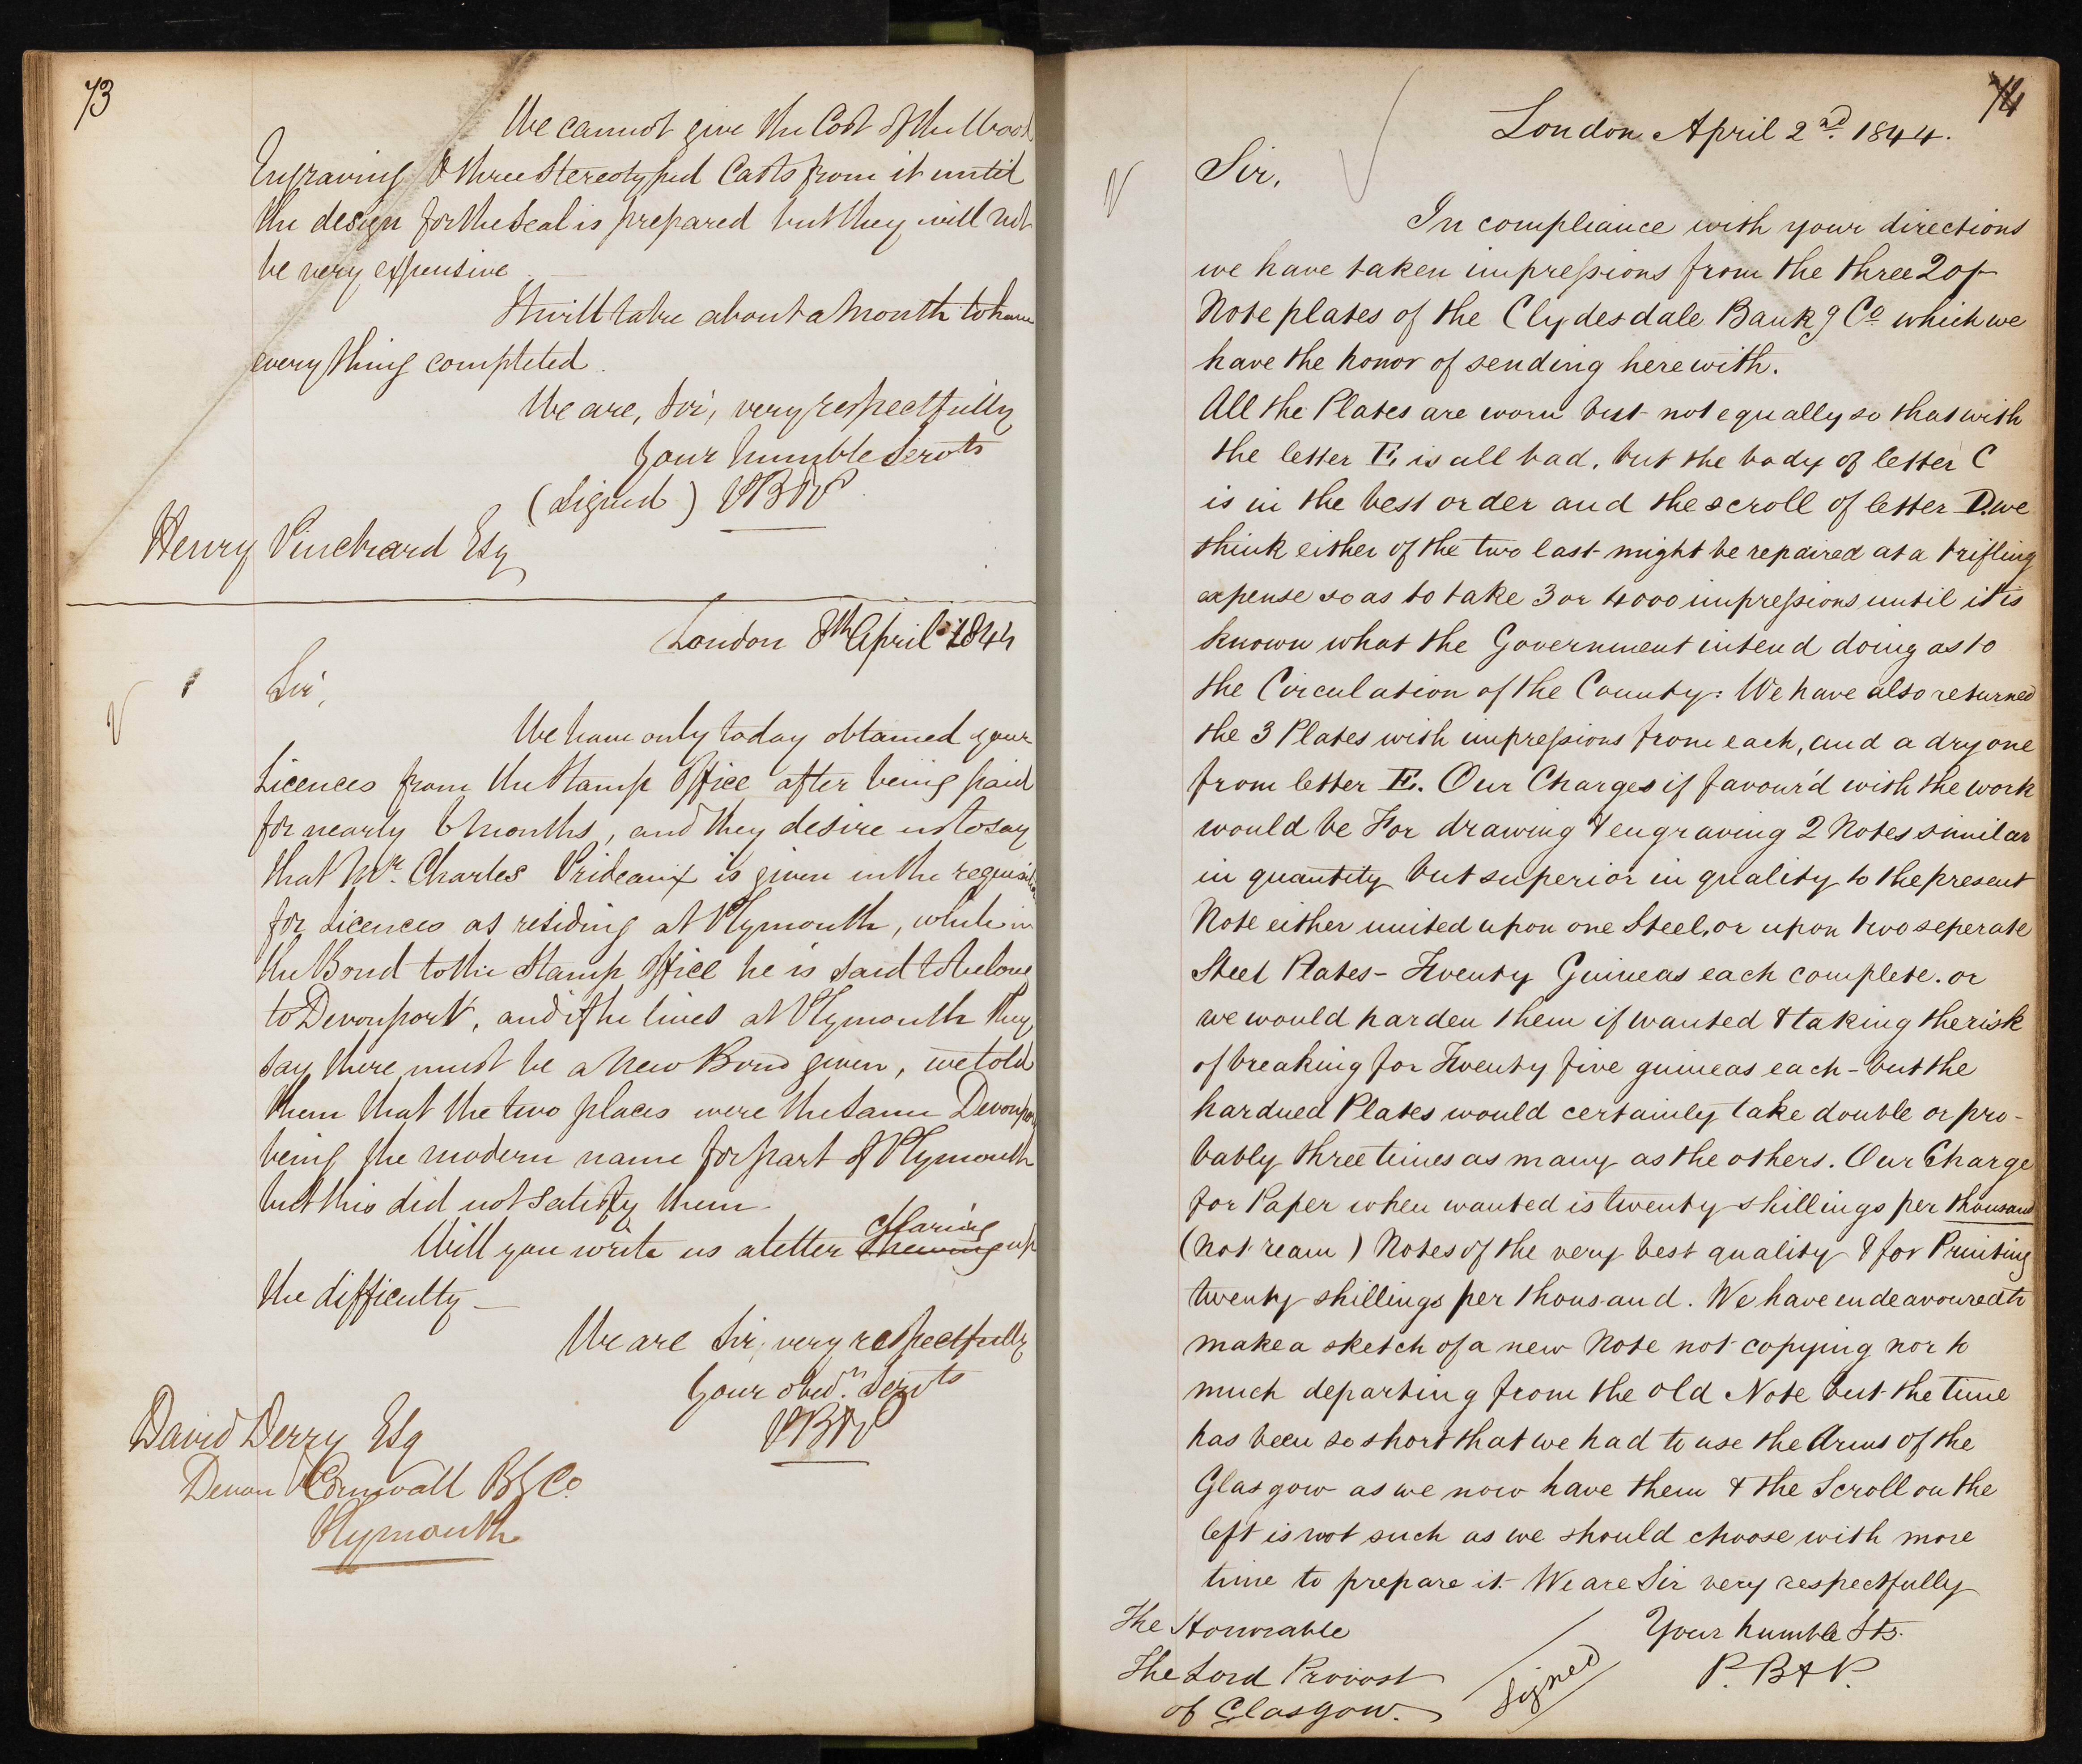 73
We cannot give the Cost of the Wood
Engraving & three Stereotyped Casts from it until
the design for the Seal is prepared but they will not
be very expensive
It will take about a Month to have
every thing completed.
We are, Sir, very respectfully
Your humble Servts
(Signed) PB&P
Henry Pinchard Esq
London 8th April 1844
Sir,
We have only today obtained your
Licences from the Stamp Office after being paid
for nearly 6 Months, and they desire us to say
that Mr. Charles Prideaux is given in the requisition
for Licences as residing at Plymouth, while in
the Bond to the Stamp Office he is said to belong
to Devonport, and if he lives at Plymouth they
say there must be a New Bond given, we told
them that the two places were the same Devonport
being the modern name for part of Plymouth
but this did not satisfy them.
Will you write us a letter shewing clearing up
the difficulty —
We are Sir, very respectfully
Your obedt. Servts
PB&P
David Derry Esq
Devon & Cornwall Bg Co.
Plymouth
74
London April 2nd. 1844.
Sir,
In compliance with your directions
we have taken impressions from the three 20/-
Note plates of the Clydesdale Bankg Co which we
have the honor of sending herewith.
All the Plates are worn but not equally so that with
the letter E, is all bad, but the body of letter C
is in the best order and the scroll of letter D. we
think either of the two last might be repaired at a trifling
expense so as to take 3 or 4000 impressions until it is
known what the Government intend doing as to
the Circulation of the County: We have also returned
the 3 Plates with impressions from each, and a dry one
from letter E. Our Charges if favour'd with the work
would be For drawing & engraving 2 Notes similar
in quantity but superior in quality to the present
Note either united upon one Steel, or upon two seperate
Steel Plates - Twenty Guineas each complete. or
we would harden them if wanted & taking the risk
of breaking for Twenty five guineas each - but the
hardned Plates would certainly take double or pro-
bably three times as many as the others. Our Charge
for Paper when wanted is twenty shillings per thousand
(not ream) Notes of the very best quality & for Printing
twenty shillings per thousand. We have endeavoured to
make a sketch of a new Note not copying nor to
much departing from the old Note but the time
has been so short that we had to use the Arms of the
Glasgow as we now have them & the Scroll on the
left is not such as we should choose with more
time to prepare it. We are Sir very respectfully
The Honorable
Your humble Sts.
The Lord Provost
Signed
P. B & P.
of Glasgow.